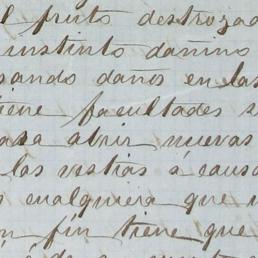 l fruto destrozad
instinto dañino
sando daños en las
iene facultades s
asa abrir nuevas
las vestias á caus
cualquiera que
fin tiene que